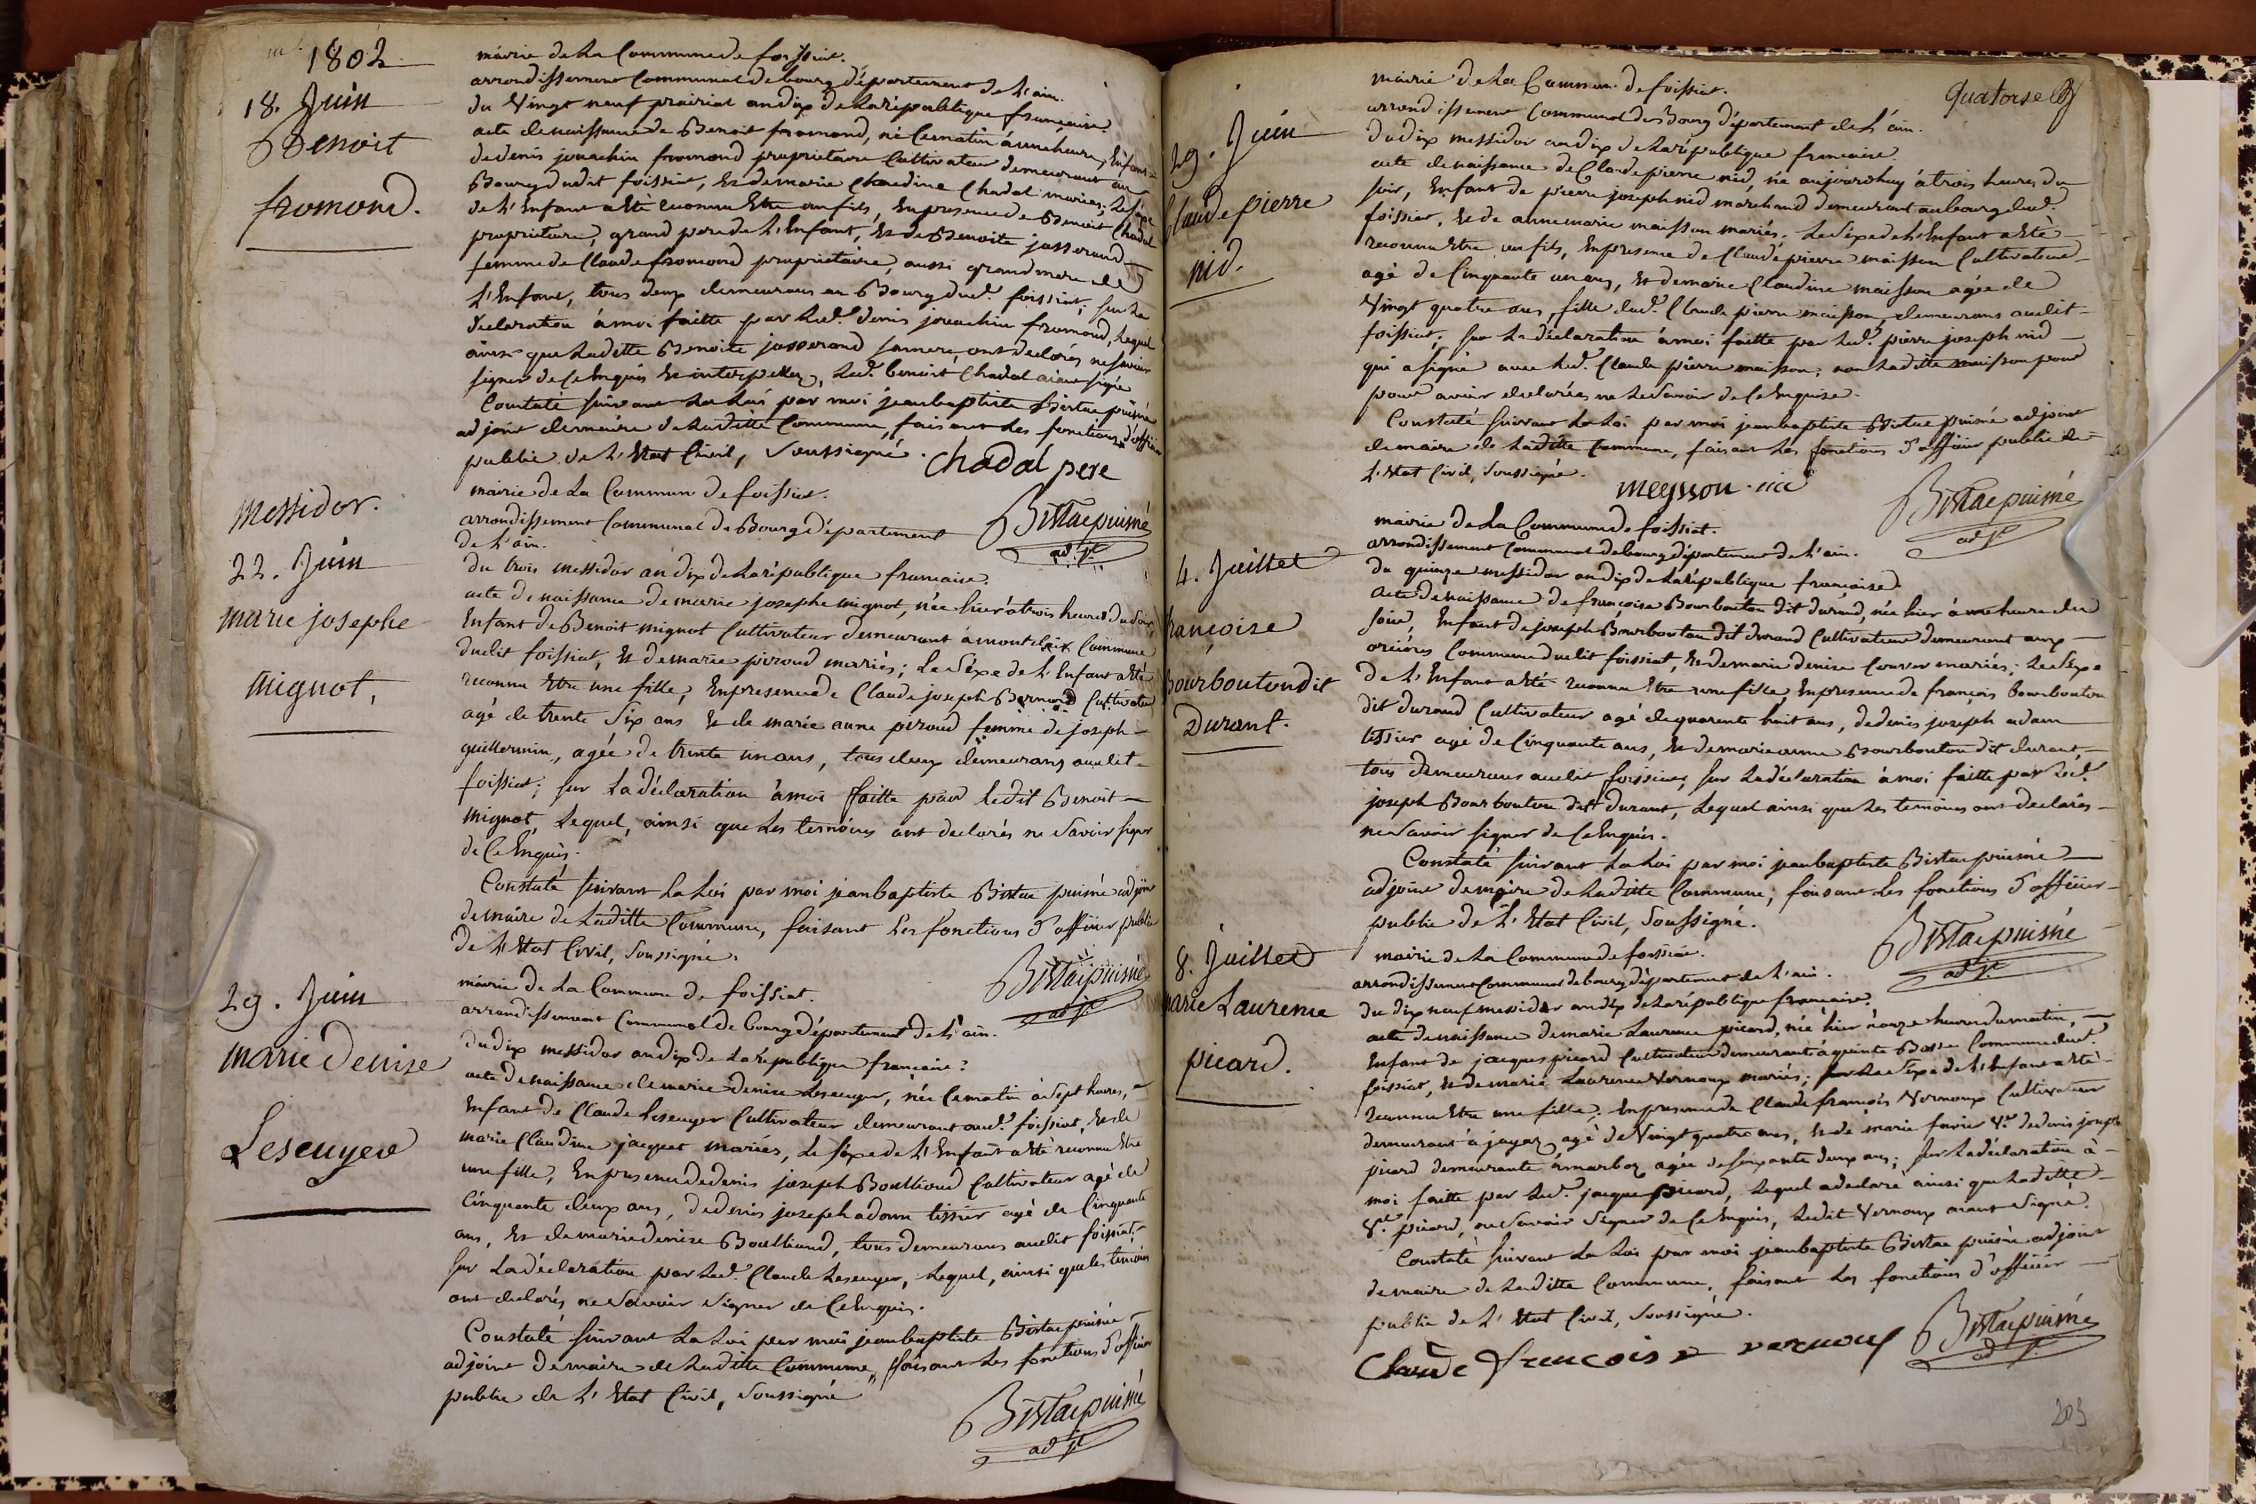 1802
18. Juin
Benoit
fromond.
mairie de La Commune de foissiat.
arrondissement Communal de bourg département de L'ain.
du Vingt neuf prairial an dix de La république française.
acte de naissance de Benoit fromond, né Cematin à une heure, Enfant
de denis jouachin fromond proprietaire Cultivateur demeurant au
Bourg dudit foissiat, Et de marie Claudine Chadal mariés; Le séxe
de L'Enfant a Eté reconnu Etre un fils, En presence de Benoit Chadal
propriétaire, grand pere de L'Enfant, Et de Benoite josserand
femme de Claude fromond propriétaire, aussi grand mere de
L'Enfant, tous deux demeurans au Bourg dud.t foissiat; sur La
déclaration à moi faitte par Led.t denis jouachin fromond, Lequel
ainsi que Laditte Benoite josserand sa mere, ont declarés ne savoir
signer de Ce Enquis Et interpellez, Led.t benoit Chadal aiant signé
Constaté suivant La Loi par moi jean baptiste Bistac puisné
adjoint de maire de Laditte Commune, faisant Les fonctions d'officier
public de L'Etat Civil, soussigné.
Chadal pere
Bistac puisné
ad.jt
messidor.
22. Juin
marie josephe
mignot,
mairie de La Commune de foissiat.
arrondissement Communal de Bourg département
de L'ain.
du trois messidor an dix de La république francaise.
acte de naissance de marie josephe mignot, née hier à trois heures du soir,
Enfant de Benoit mignot Cultivateur demeurant à montcloix Commune
dudit foissiat, Et de marie piroud mariés; Le séxe de L'Enfant a Eté
reconnu Etre une fille, En presence de Claude joseph Bernard Cultivateur
agé de trente six ans Et de marie anne piroud femme de joseph
guillermin, agée de trente un ans, tous deux demeurans audit
foissiat; sur La déclaration à moi faitte par Ledit Benoit
mignot, Lequel, ainsi que Les temoins ont declarés ne savoir signer
de Ce Enquis.
Constaté suivant La Loi par moi jean baptiste Bistac puisné adjoint
de maire de Laditte Commune, faisant Les fonctions d'officier public
de L'Etat Civil, soussigné.
Bistac puisné
ad.jt
29. Juin
marie Denise
Lescuyer
mairie de La Commune de foissiat.
arrondissement Communal de bourg département de L'ain.
du dix messidor an dix de La république francaise.
acte de naissance de marie denise Lescuyer, née Cematin à sept heures,
Enfant de Claude Lescuyer Cultivateur demeurant aud.t foissiat, Et de
marie Claudine jacquet mariés, Le séxe de L'Enfant a Eté reconnu Etre
une fille, En presence de denis joseph Boullioud Cultivateur agé de
Cinquante deux ans, de denis joseph adam tissier agé de Cinquante
ans, Et de marie denise Boullioud, tous demeurans audit foissiat
sur La déclaration par Led.t Claude Lescuyer, Lequel, ainsi que les temoins
ont declarés ne savoir signer de Ce Enquis.
Constaté suivant La Loi par moi jean baptiste Bistac puisné
adjoint de maire de Laditte Commune, faisant Les fonctions d'officier
public de L'Etat Civil, soussigné
Bistac puisné
ad.jt
quatorse
29. Juin
Claude pierre
nid.
mairie de La Commune de foissiat.
arrondissement Communal de Bourg département de L'ain.
du dix messidor an dix de La république francaise.
acte de naissance de Claude pierre nid, né aujourdhuy à trois heures du
soir, Enfant de pierre joseph nid marchand demeurant au bourg dud.t
foissiat, Et de anne marie maisson mariés. Le séxe de L'Enfant a Eté
reconnu Etre un fils, En presence de Claude pierre maisson Cultivateur
agé de Cinquante un ans, Et de marie Claudine maisson agée de
Vingt quatre ans, fille dud.t Claude pierre maisson, demeurans audit
foissiat; sur La déclaration à moi faitte par Led.t pierre joseph nid
qui a signé avec Led.t Claude pierre maisson; non Laditte maisson pour
pour avoir declarée ne Le savoir de Ce Enquise.
Constaté suivant La Loi par moi jean baptiste Bistac puisné adjoint
de maire de Laditte Commune, faisant Les fonctions d'officier public de
L'Etat Civil, soussigné.
meysson nid
Bistac puisné
ad.jt
4. Juillet
françoise
bourbouton dit
Durant.
mairie de La Commune de foissiat.
arrondissement Communal de bourg département de L'ain.
du quinze messidor an dix de La république française
acte de naissance de francoise Bourbouton dit durand, née hier à une heure du
soir, Enfant de joseph Bourbouton dit durand Cultivateur demeurant aux
oriéres Commune dudit foissiat, Et de marie denise Couvon mariés; Le séxe
de L'Enfant a Eté reconnu Etre une fille, En presence de françois bourbouton
dit durand Cultivateur agé de quarente huit ans, de denis joseph adam
tissier agé de Cinquante ans, Et de marie anne Bourbouton dit durant
tous demeurans audit foissiat, sur La déclaration à moi faitte par Led.t
joseph Bourbouton dit durant, Lequel ainsi que Les temoins ont declarés
ne savoir signer de Ce Enquis.
Constaté suivant La Loi par moi jean baptiste Bistac puisné
adjoint de maire de Laditte Commune, faisant Les fonctions d'officier
public de L'Etat Civil, soussigné.
Bistac puisné
ad.jt
8. Juillet
marie Laurence
picard.
mairie de La Commune de foissiat.
arrondissement Communal de bourg département de L'ain.
du dix neuf messidor an dix de La république francaise.
acte de naissance de marie Laurence picard, née hier à onze heures du matin,
Enfant de jacques picard Cultivateur demeurant à quinte Basse Commune dud.t
foissiat, Et de marie Laurence Vernoux mariés; Le séxe de L'Enfant a Eté
reconnu Etre une fille; En presence de Claude françois Vernoux Cultivateur
demeurant à jayaz agé de Vingt quatre ans, Et de marie favier V.e de denis joseph
picard demeurante à marboz agée de soixante deux ans; sur La déclaration à
moi faitte par Led.t jacque picard, Lequel a declaré ainsi que Laditte
V.e picard, ne savoir signer de Ce Enquis, Ledit Vernoux aiant signé.
Constaté suivant La Loi par moi jean baptiste Bistac puisné adjoint
de maire de Laditte Commune, faisant Les fonctions d'officier
public de L'Etat Civil, soussigné.
Claude francois vernoux
Bistac puisné
ad.jt
203